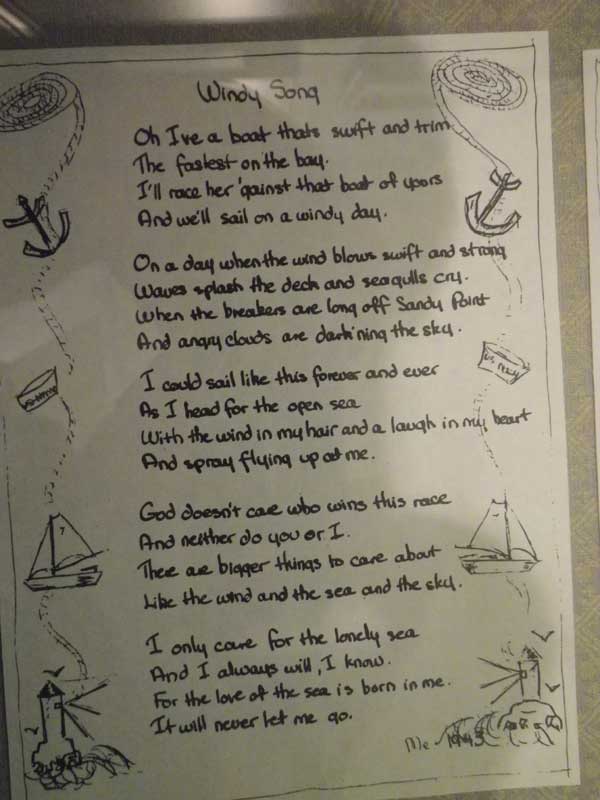 Windy Song
Oh I've a boat thats swift and trim
The fastest on the bay.
I'll race her 'gainst that boat of yours
And we'll sail on a windy day.
On a day when the wind blows swift and strong
Waves splash the deck and seagulls cry.
When the breakers are long off Sandy Point
And angry clouds are dark'ning the sky.
I could sail like this forever and ever
As I head for the open sea
With the wind in my hair and a laugh in my heart
And spray flying up at me.
God doesn't care who wins this race
And neither do you or I.
There are bigger things to care about
Like the wind and the sea and the sky.
I only care for the lonely sea
And I always will, I know.
For the love of the sea is born in me.
It will never let me go.
Me
7